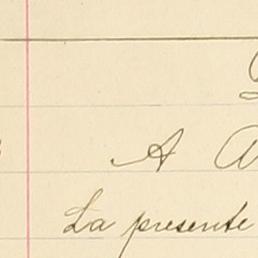 A
La presente